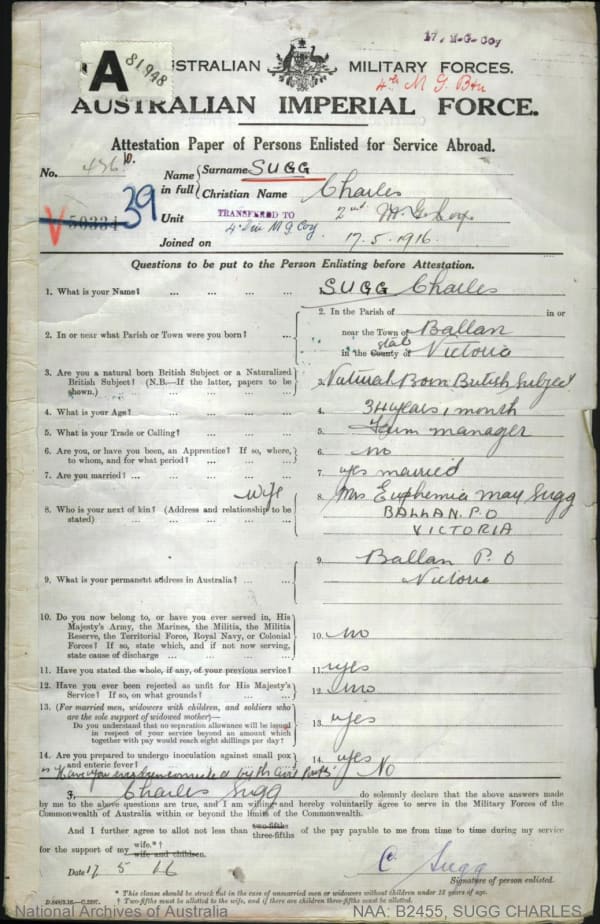 17. M.G. Coy
A 81948
AUSTRALIAN MILITARY FORCES.
4th M G Btn
AUSTRALIAN IMPERIAL FORCE.
Attestation Paper of Persons Enlisted for Service Abroad.
No. 436 Name in full Surname SUGG
Christian Name Charles
V 50334 39 Unit TRANSFERRED TO 2nd M.G. Coy
4 Div M G Coy
Joined on 17.5.1916.
Questions to be put to the Person Enlisting before Attestation.
1. What is your Name? ... ... ... SUGG Charles
2. In or near what Parish or Town were you born? ... 2. In the Parish of in or
near the Town of Ballan
in the County of State Victoria
3. Are you a natural born British Subject or a Naturalized British Subject? (N.B.—If the latter, papers to be shown.) ... ... 3. Natural Born British Subject
4. What is your Age? ... ... ... 4. 34 years, 1 month
5. What is your Trade or Calling? ... ... 5. Farm manager
6. Are you, or have you been, an Apprentice? If so, where, to whom, and for what period? ... ... 6. no
7. Are you married? ... ... ... 7. yes married
wife
8. Who is your next of kin? (Address and relationship to be stated) ... ... 8. Mrs Euphemia May Sugg
BALLAN. P.O
VICTORIA
9. What is your permanent address in Australia? ... ... 9. Ballan P.O
Victoria
10. Do you now belong to, or have you ever served in, His Majesty's Army, the Marines, the Militia, the Militia Reserve, the Territorial Force, Royal Navy, or Colonial Forces? If so, state which, and if not now serving, state cause of discharge ... ... 10. no
11. Have you stated the whole, if any, of your previous service? 11. yes
12. Have you ever been rejected as unfit for His Majesty's Service? If so, on what grounds? ... ... 12. no
13. (For married men, widowers with children, and soldiers who are the sole support of widowed mother)—
Do you understand that no separation allowance will be issued in respect of your service beyond an amount which together with pay would reach eight shillings per day? 13. yes
14. Are you prepared to undergo inoculation against small pox and enteric fever? ... ... 14. yes
Have you ever been convicted by the Civil No
I, Charles Sugg do solemnly declare that the above answers made
by me to the above questions are true, and I am willing and hereby voluntarily agree to serve in the Military Forces of the
Commonwealth of Australia within or beyond the limits of the Commonwealth.
And I further agree to allot not less than two-fifths three-fifths of the pay payable to me from time to time during my service
for the support of my wife.*† wife and children.
Date 17 5 16 C. Sugg
Signature of person enlisted.
* This clause should be struck out in the case of unmarried men or widowers without children under 18 years of age.
† Two-fifths must be allotted to the wife, and if there are children three-fifths must be allotted.
National Archives of Australia NAA: B2455, SUGG CHARLES